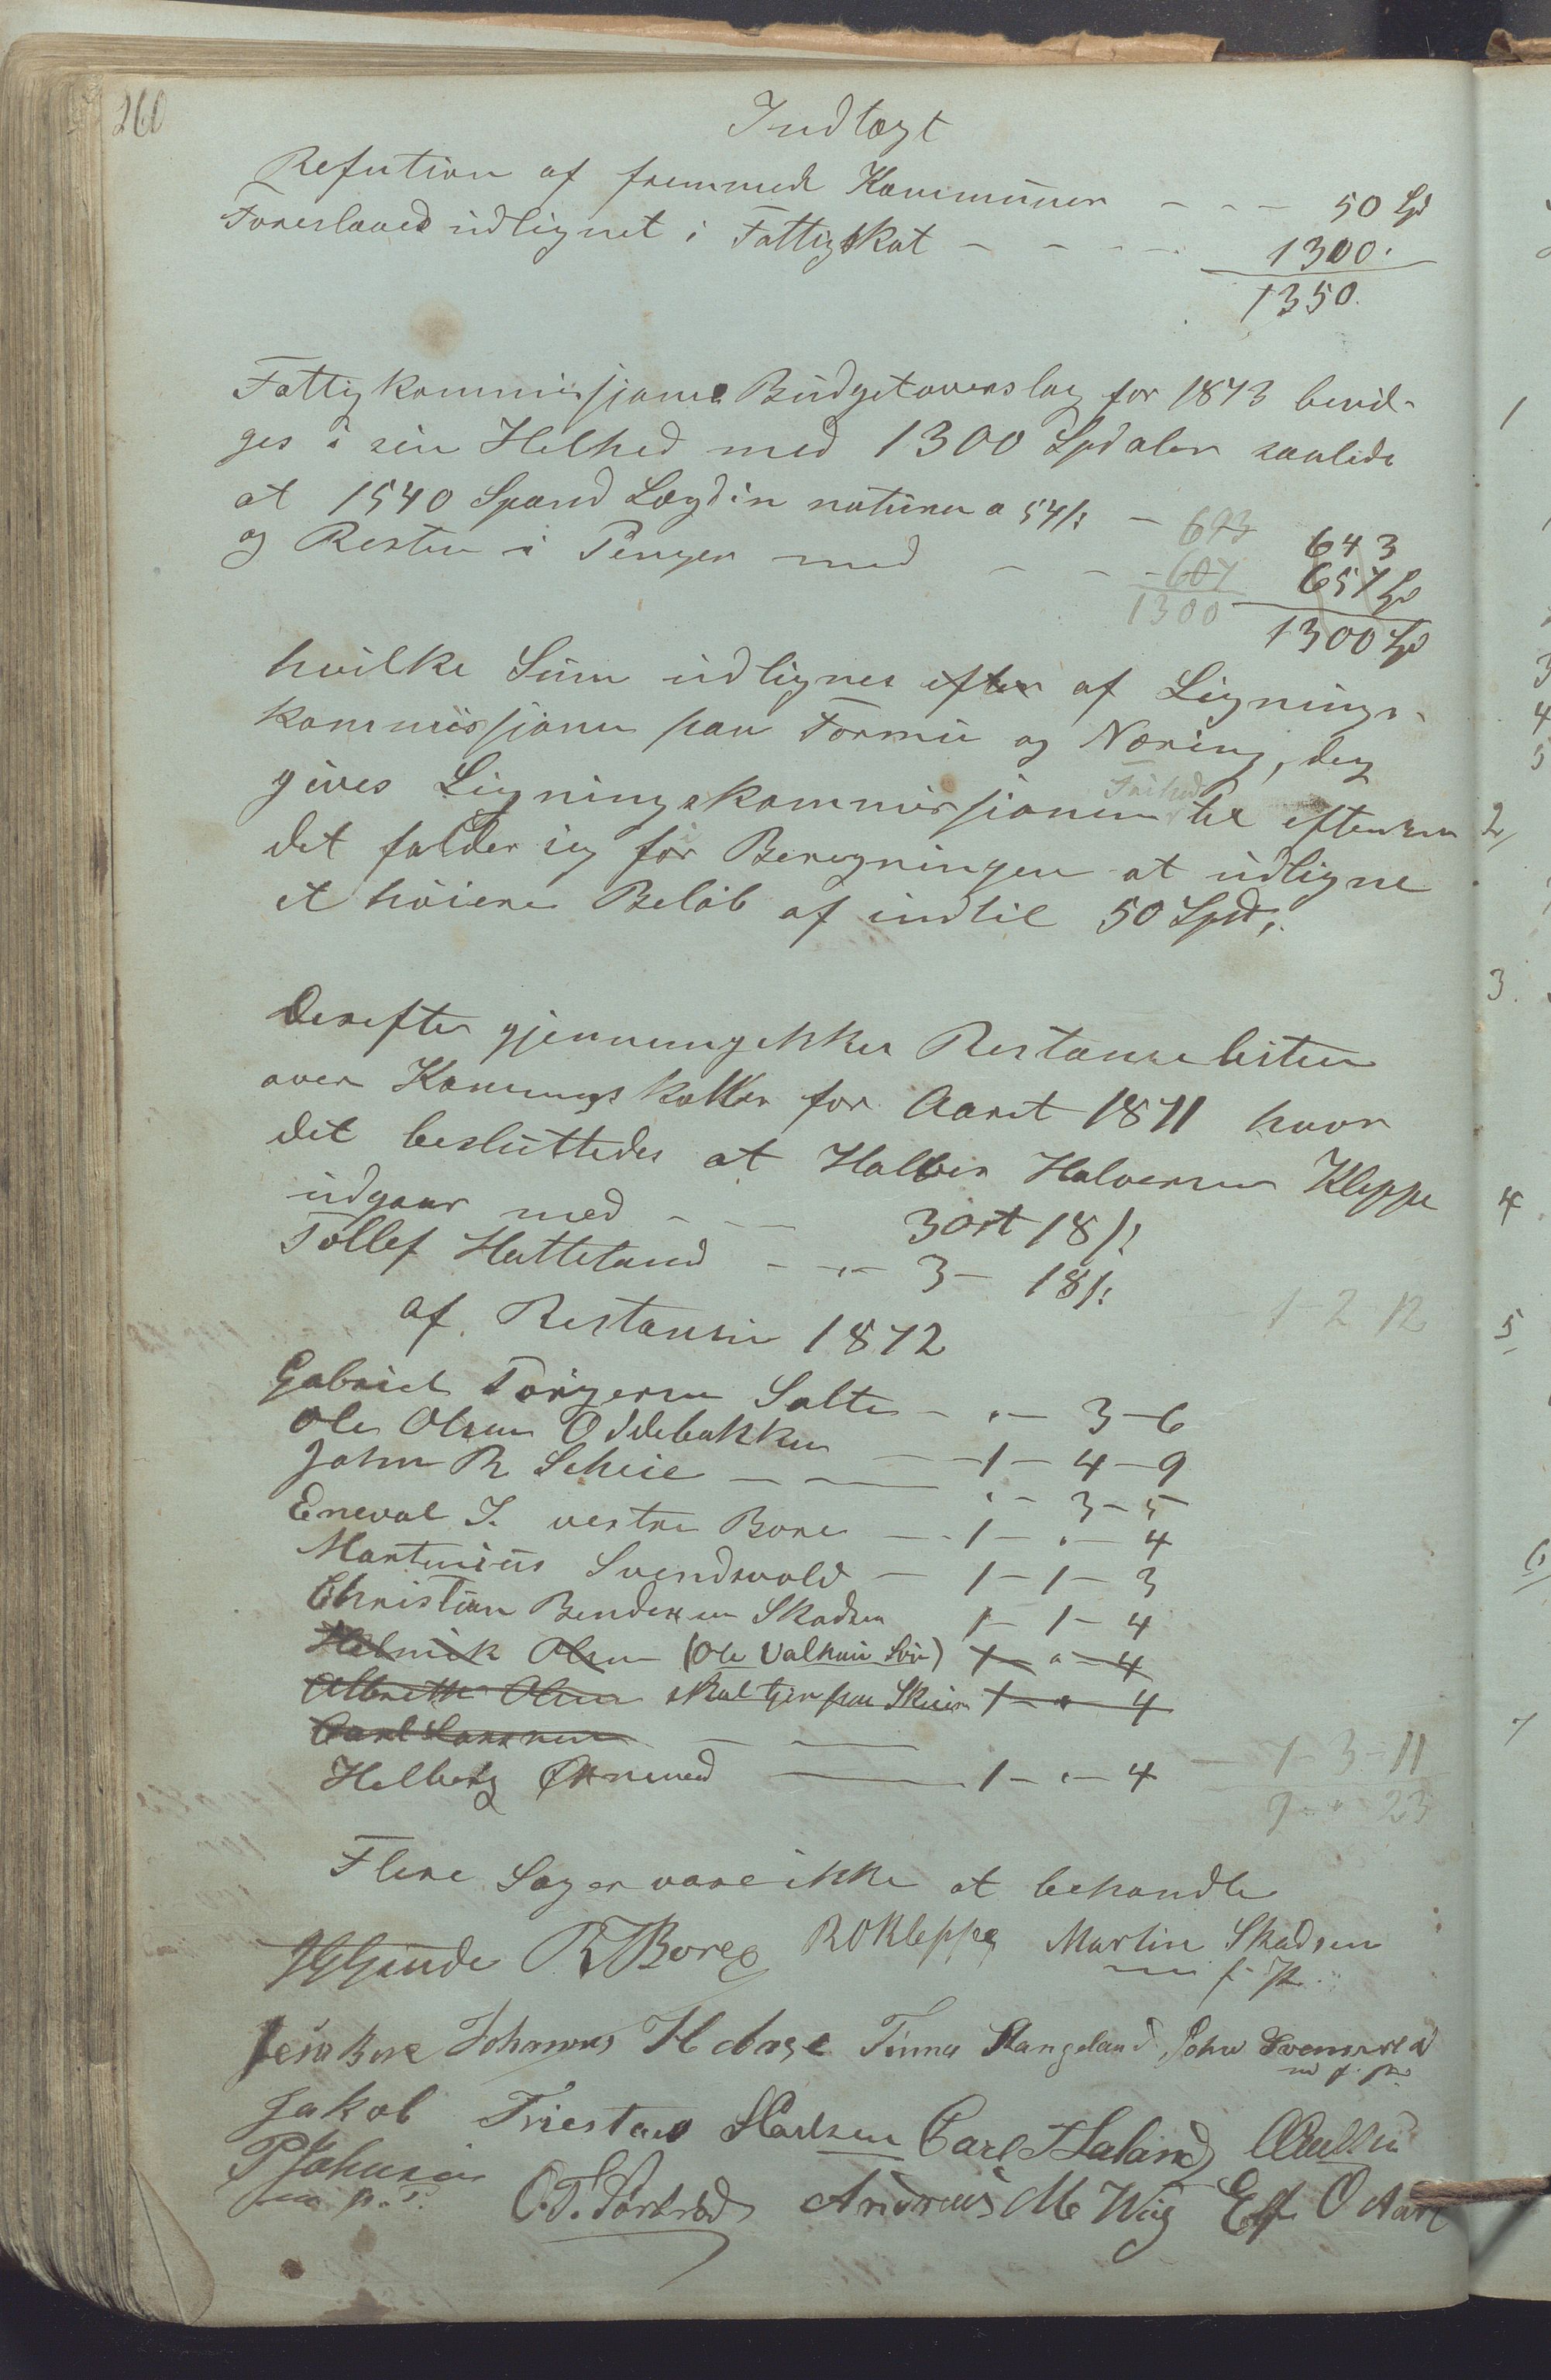 260
Indtægt
Refution af fremmede Kommuner - - - 50 Spd
Foreslaaes udlignet i Fattigskat - - - - 1300.
1350.
Fattigkommissjonens Budgetoverslag for 1873 bevil-
ges i sin Helhed med 1300 Spdaler saalede
at 1540 Spand Lægd in natura a 54 s: - 693 643
og Resten i Penger med - - - 607 657 Spd
1300 1300 Spd
hvilke Sum udlignes efter af Lignings-
kommissjonen paa Formue og Næring, dog
gives Ligningskommissjonen Frihed til eftersom
det falder sig for Beregningen at udligne
et høiere Beløb af indtil 50 Spd.
Derefter gjennemgikkes Restanselisten
over Komuneskatten for Aaret 1871 hvor
det besluttedes at Halvor Halvorsen Kleppe
udgaar med - - - 3 Ort 18 s:
Tollef Hatteland - „ - 3 - 18 s:
1 2 12
af Restansen 1872
Gabriel Torgersen Salte - „ - 3 - 6
Ole Olsen Oddebakken - 1 - 4 - 9
John R Scheie - „ - 3 - 5
Eneval J. vestre Bore - 1 - „ - 4
Martinius Svendsvold - 1 - 1 - 3
Christian Bendixen Skadsen 1 - 1 - 4
Helmik Olsen (Ole Valkaui Søn) 1 - „ - 4
Albrette Olsen skal tjene paa Skeien 1 - „ - 4
Carl Larsen
Helberg Øxnevad - 1 - „ - 4 - 1 - 3 - 11
9 „ 23
Flere Sager vare ikke at behandle
R Bore ROKleppe Martin Skadsen
m. f. P.
Jens Bore Johannes H Tønnes Stangeland John Svensvold
m. f. P.
Jakob Friestad Carl Haland
P Johnsen
m. p. P.
O. T. Andreas M Wiig O Aare